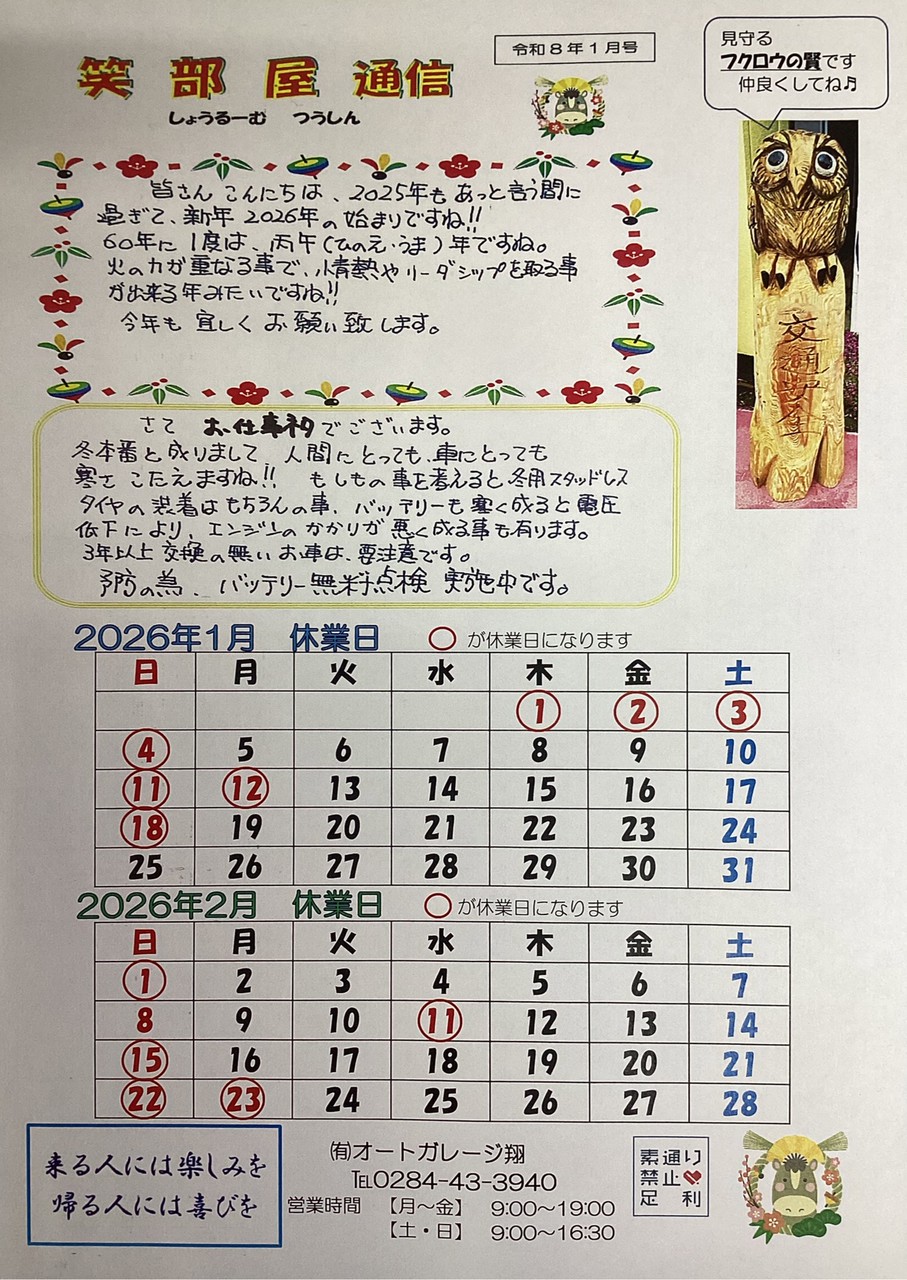 令和8年1月号
笑部屋通信
しょうるーむ つうしん
見守る
フクロウの賢です
仲良くしてね♬
交通安全
皆さん こんにちは、2025年も あっと言う間に
過ぎて、新年 2026年の 始まりですね!!
60年に 1度は、丙午(ひのえ・うま)年ですね。
火の力が重なる事で、情熱やリーダシップを取る事
が出来る年みたいですね!!
今年も 宜しく お願い致します。
さて お仕事ネタでございます。
冬本番と成りまして、人間にとっても、車にとっても
寒さ こたえますね!! もしもの事を考えると、冬用スタッドレス
タイヤの装着はもちろんの事、バッテリーも寒く成ると電圧
低下により、エンジンのかかりが悪く成る事も有ります。
3年以上 交換の無い お車は、要注意です。
予防の為、バッテリー無料点検 実施中です。
2026年1月 休業日 ○が休業日になります
日 月 火 水 木 金 土
1 2 3
4 5 6 7 8 9 10
11 12 13 14 15 16 17
18 19 20 21 22 23 24
25 26 27 28 29 30 31
2026年2月 休業日 ○が休業日になります
日 月 火 水 木 金 土
1 2 3 4 5 6 7
8 9 10 11 12 13 14
15 16 17 18 19 20 21
22 23 24 25 26 27 28
来る人には楽しみを
帰る人には喜びを
㈲オートガレージ翔
℡0284-43-3940
営業時間 【月~金】 9:00~19:00
【土・日】 9:00~16:30
素通り
禁止
足利